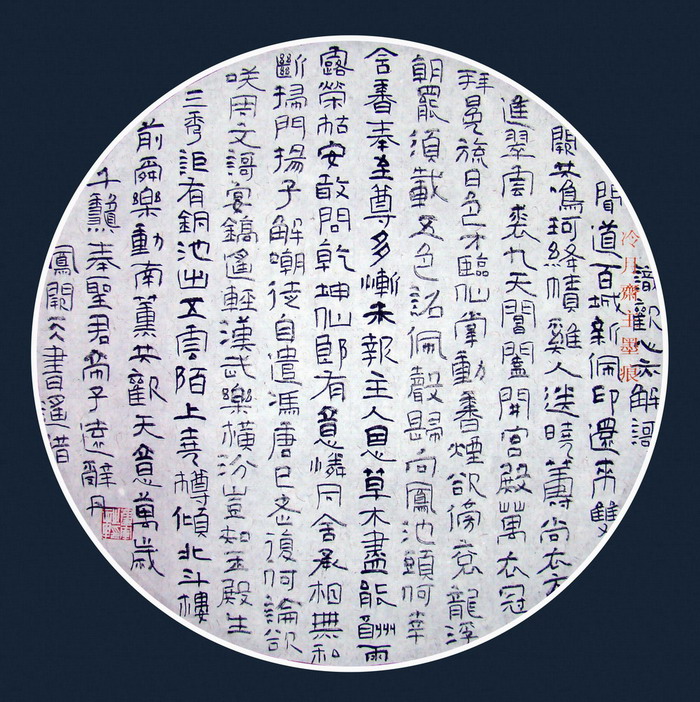 識歡心亦解謌
聞道百城新佩印還來雙
闕共鳴珂絳幘雞人送曉籌尚衣方
進翠雲裘九天閶闔開宮殿萬衣冠
拜冕旒日色才臨仙掌動香煙欲傍袞龍浮
朝罷須裁五色詔佩聲歸向鳳池頭何幸
含香奉至尊多慚未報主人恩草木盡能酬雨
露榮枯安敢問乾坤仙郎有意憐同舍丞相無私
斷掃門揚子解嘲徒自遣馮唐已老復何論欲
笑周文謌宴鎬遙輕漢武樂橫汾豈知玉殿生
三秀詎有銅池出五雲陌上堯樽傾北斗樓
前舜樂動南薰共歡天意萬歲
千龝奉聖君帝子遠辭丹
鳳闕天書遙借
冷月齋主墨痕